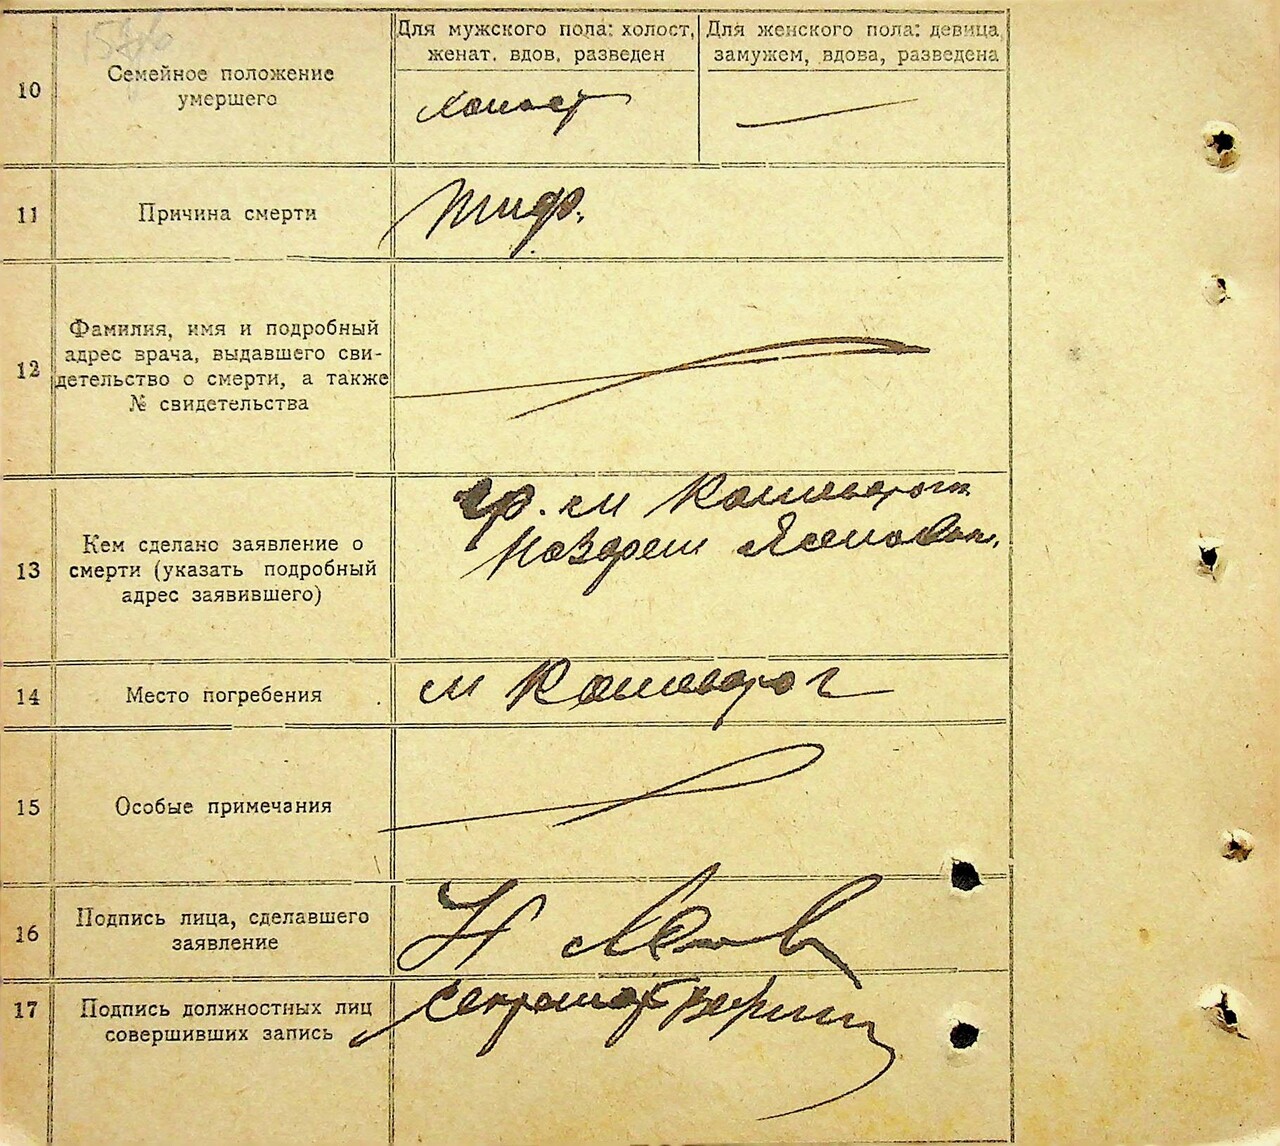 Для мужского пола: холост,
женат. вдов, разведен
Для женского пола: девица,
замужем, вдова, разведена
10
Семейное положение
умершего
холост
11
Причина смерти
тиф.
12
Фамилия, имя и подробный
адрес врача, выдавшего сви-
детельство о смерти, а также
№ свидетельства
13
Кем сделано заявление о
смерти (указать подробный
адрес заявившего)
гр. м
14
Место погребения
м
15
Особые примечания
16
Подпись лица, сделавшего
заявление
17
Подпись должностных лиц
совершивших запись